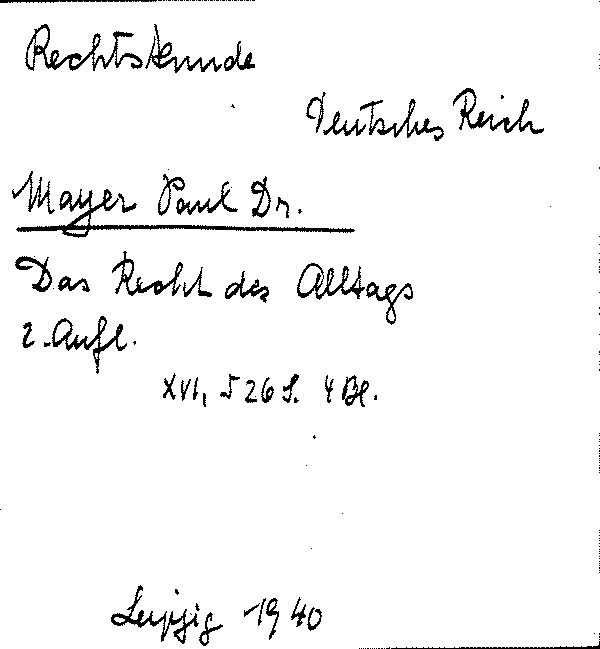 Rechtskunde
Deutsches Reich
Mayer Paul Dr.
Das Recht des Alltags
2. Aufl.
XVI, 526 S. 4 Bl.
Leipzig 1940